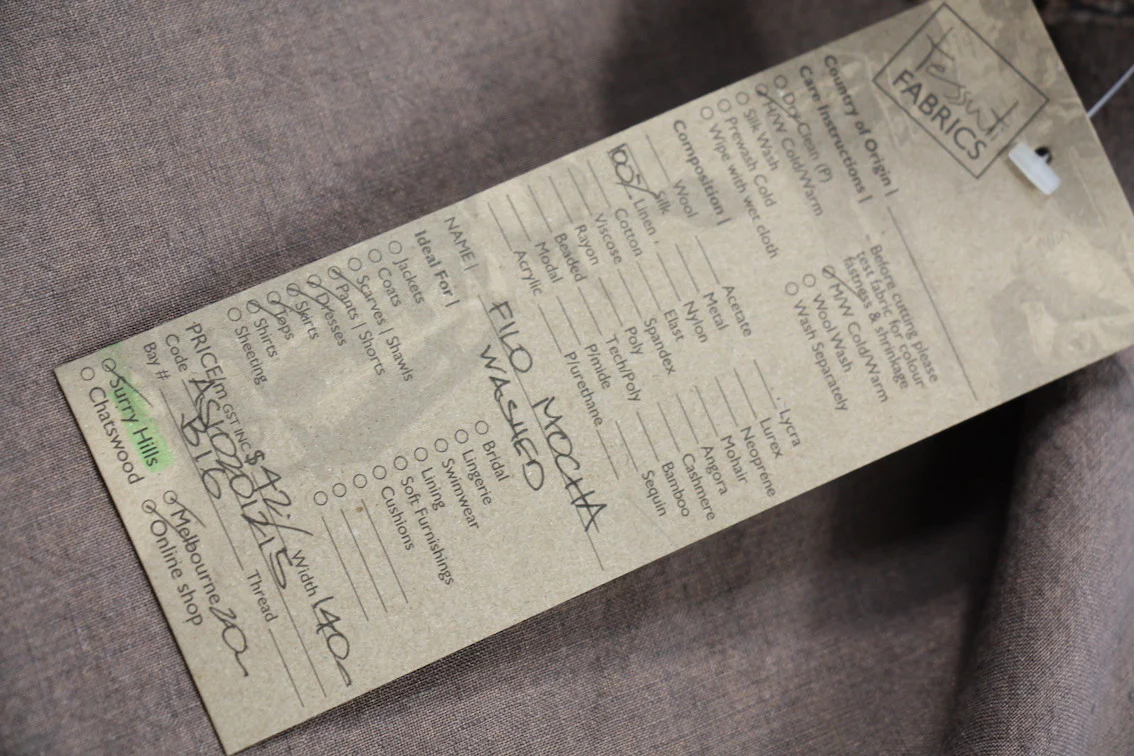 tessuti
FABRICS
Country of Origin |
Care Instructions |
Dry Clean (P)
M/W Cold/Warm
Silk Wash
Prewash Cold
Wipe with wet cloth
Before cutting please
test fabric for colour
fastness & shrinkage
M/W Cold/Warm
Wool Wash
Wash Separately
Composition |
Wool
Silk
100% Linen
Cotton
Viscose
Rayon
Beaded
Modal
Acrylic
Acetate
Metal
Nylon
Elast
Spandex
Poly
Tech/Poly
P/mide
P/urethane
Lycra
Lurex
Neoprene
Mohair
Angora
Cashmere
Bamboo
Sequin
NAME | FILO MOCHA
WASHED
Ideal For |
Jackets
Coats
Scarves | Shawls
Pants | Shorts
Dresses
Skirts
Tops
Shirts
Sheeting
Bridal
Lingerie
Swimwear
Lining
Soft Furnishings
Cushions
PRICE/m GST INC $42./ Width 140
Code
Bay # B16 Thread
Surry Hills
Chatswood
Melbourne 20
Online shop